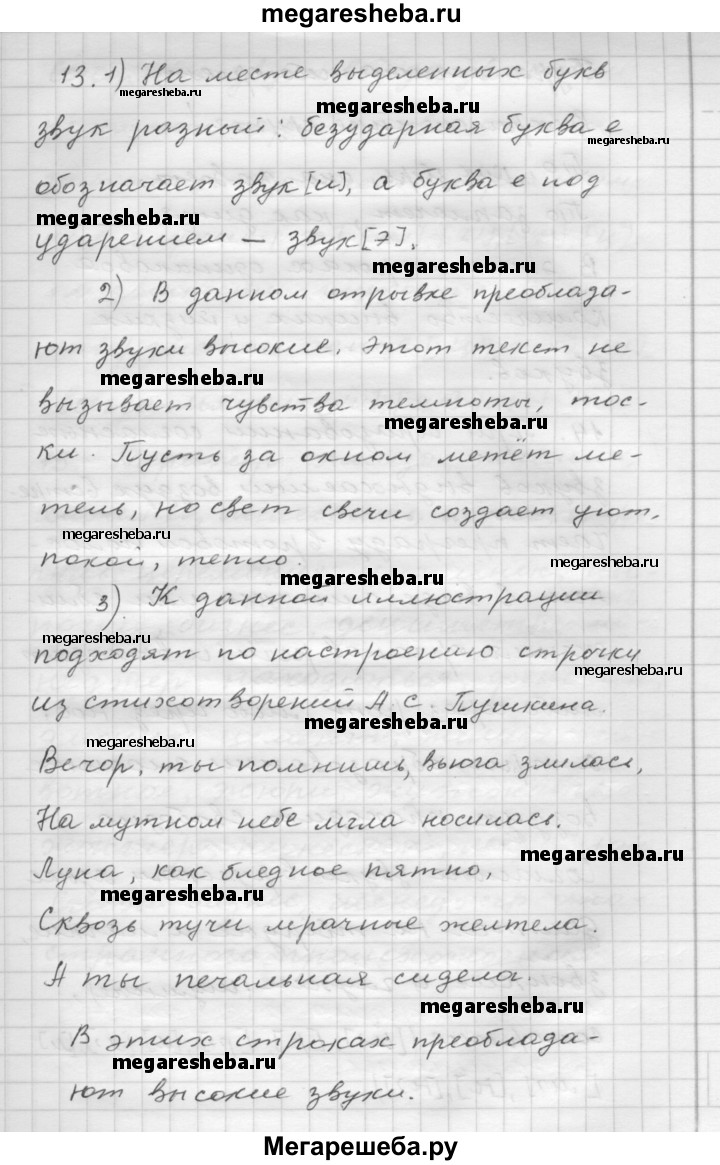 megaresheba.ru
13. 1) На месте выделенных букв
megaresheba.ru
megaresheba.ru
звук разный: безударная буква е
megaresheba.ru
обозначает звук [и], а буква е под
megaresheba.ru
ударением — звук [э].
megaresheba.ru
2) В данном отрывке преоблада-
ют звуки высокие. Этот текст не
megaresheba.ru
вызывает чувства темноты, тос-
megaresheba.ru
ки. Пусть за окном метёт ме-
тель, но свет свечи создает уют,
megaresheba.ru
покой, тепло.
megaresheba.ru
3) К данной иллюстрации
megaresheba.ru
подходят по настроению строчки
megaresheba.ru
из стихотворений А.С. Пушкина.
megaresheba.ru
megaresheba.ru
Вечор, ты помнишь, вьюга злилась,
На мутном небе мгла носилась.
megaresheba.ru
Луна, как бледное пятно,
megaresheba.ru
Сквозь тучи мрачные желтела.
А ты печальная сидела.
megaresheba.ru
В этих строках преоблада-
megaresheba.ru
ют высокие звуки.
Мегарешеба.ру